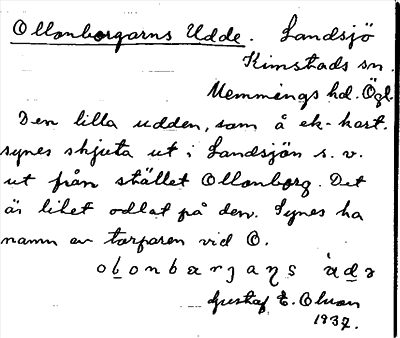 Ollonborgarns Udde. Landsjö
Kimstads sn.
Memmings hd. Ögl.
Den lilla udden, som å ek-kart.
synes skjuta ut i Landsjön s. v.
ut från stället Ollonborg. Det
är litet odlat på den. Synes ha
namn av torparen vid O.
Gustaf E. Olson
1937.